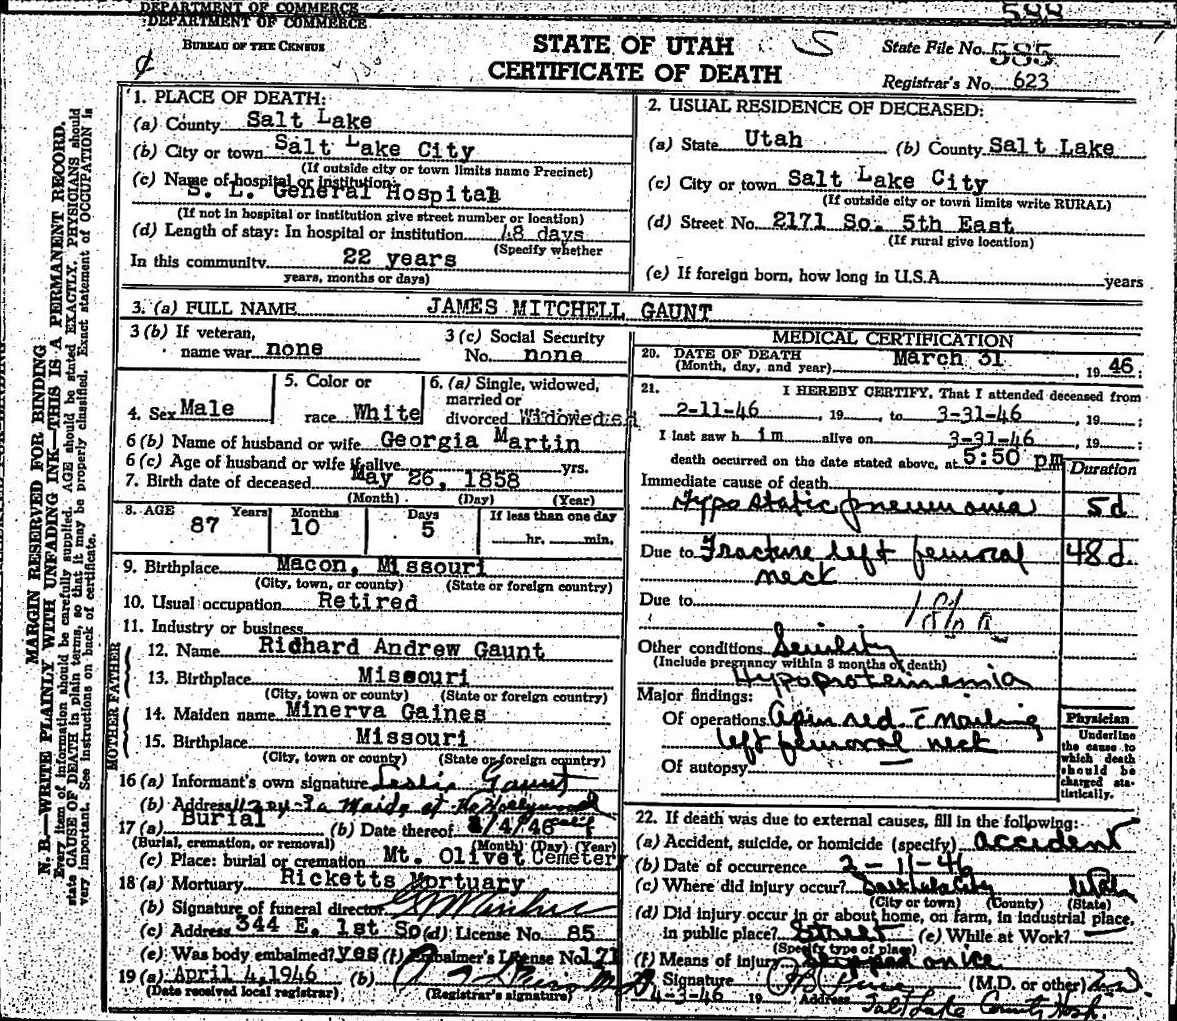 DEPARTMENT OF COMMERCE
DEPARTMENT OF COMMERCE
BUREAU OF THE CENSUS
588
STATE OF UTAH
CERTIFICATE OF DEATH
S
State File No. 585
Registrar's No. 623
MARGIN RESERVED FOR BINDING
N. B.—WRITE PLAINLY WITH UNFADING INK—THIS IS A PERMANENT RECORD.
Every item of information should be carefully supplied. AGE should be stated EXACTLY. PHYSICIANS should
state CAUSE OF DEATH in plain terms, so that it may be properly classified. Exact statement of OCCUPATION is
very important. See instructions on back of certificate.
1. PLACE OF DEATH:
(a) County Salt Lake
(b) City or town Salt Lake City
(If outside city or town limits name Precinct)
(c) Name of hospital or institution:
S. L. General Hospital
(If not in hospital or institution give street number or location)
(d) Length of stay: In hospital or institution 48 days
(Specify whether
In this community 22 years
years, months or days)
2. USUAL RESIDENCE OF DECEASED:
(a) State Utah (b) County Salt Lake
(c) City or town Salt Lake City
(If outside city or town limits write RURAL)
(d) Street No. 2171 So. 5th East
(If rural give location)
(e) If foreign born, how long in U.S.A. years
3. (a) FULL NAME JAMES MITCHELL GAUNT
3 (b) If veteran,
name war none
3 (c) Social Security
No. none
4. Sex Male
5. Color or
race White
6. (a) Single, widowed,
married or
divorced Widowed
6 (b) Name of husband or wife Georgia Martin
6 (c) Age of husband or wife if alive yrs.
7. Birth date of deceased May 26, 1858
(Month) (Day) (Year)
8. AGE 87 Years Months 10 Days 5 If less than one day
hr. min.
9. Birthplace Macon, Missouri
(City, town, or county) (State or foreign country)
10. Usual occupation Retired
11. Industry or business
FATHER
12. Name Richard Andrew Gaunt
13. Birthplace Missouri
(City, town or county) (State or foreign country)
MOTHER
14. Maiden name Minerva Gaines
15. Birthplace Missouri
(City, town or county) (State or foreign country)
16 (a) Informant's own signature Leslie Gaunt
(b) Address Hollywood Calif
17 (a) Burial (b) Date thereof 4/4/46
(Burial, cremation, or removal) (Month) (Day) (Year)
(c) Place: burial or cremation Mt. Olivet Cemetery
18 (a) Mortuary Ricketts Mortuary
(b) Signature of funeral director
(c) Address 344 E. 1st So (d) License No. 85
(e) Was body embalmed? yes (f) Embalmer's License No. 171
19 (a) April 4, 1946 (b)
(Date received local registrar) (Registrar's signature)
MEDICAL CERTIFICATION
20. DATE OF DEATH March 31, 19 46;
(Month, day, and year)
21. I HEREBY CERTIFY, That I attended deceased from
2-11-46, 19 to 3-31-46, 19 ;
I last saw h im alive on 3-31-46, 19 ;
death occurred on the date stated above, at 5:50 pm
Duration
Immediate cause of death
Hypostatic pneumonia 5d
Due to Fracture left femoral 48 d.
neck
Due to
Other conditions Senility
(Include pregnancy within 3 months of death)
Hypoproteinemia
Major findings:
Of operations Open red. c nailing
left femoral neck
Of autopsy
Physician
Underline
the cause to
which death
should be
charged sta-
tistically.
22. If death was due to external causes, fill in the following:
(a) Accident, suicide, or homicide (specify) accident
(b) Date of occurrence 2-11-46
(c) Where did injury occur? Salt Lake City Utah
(City or town) (County) (State)
(d) Did injury occur in or about home, on farm, in industrial place,
in public place? Street (e) While at Work?
(Specify type of place)
(f) Means of injury slipped on ice
Signature (M.D. or other) M.D.
4-3-46 19 Address Salt Lake County Hosp.